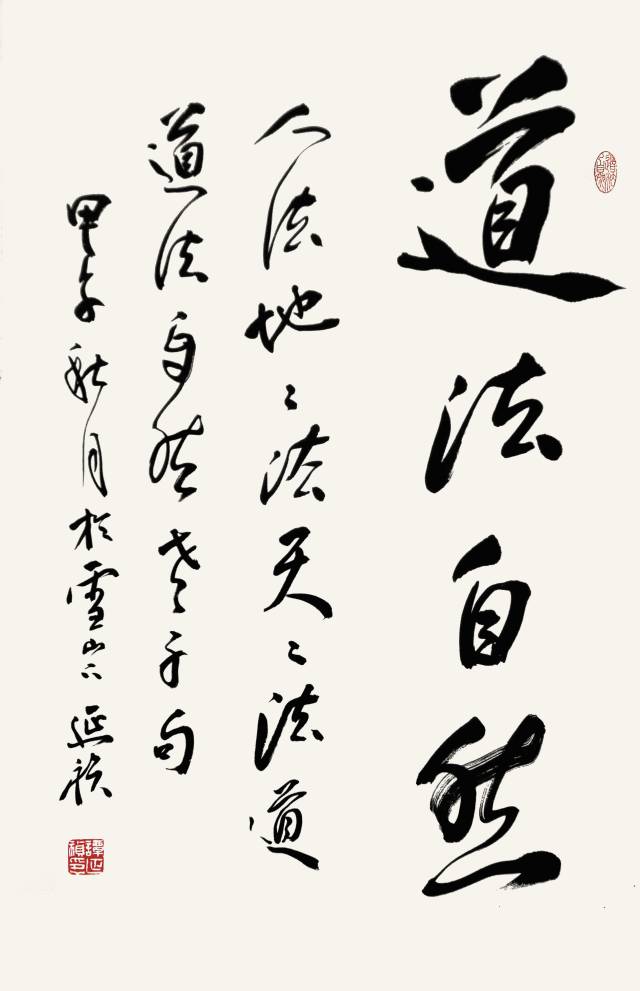 道法自然
人法地〻法天〻法道
道法自然老子句
甲子秋月於雪山下延祺